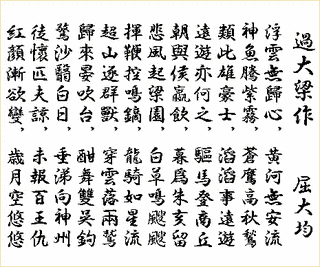 過大梁作　屈大均
浮雲無歸心，黃河無安流
神魚騰紫霧，蒼鷹高秋鷙
類此雄豪士，滔滔事遠遊
遠遊亦何之，驅馬登商丘
朝與侯嬴飲，暮爲朱亥留
悲風起梁園，白草鳴颼颼
揮鞭控鳴鏑，龍騎如星流
超山逐群獸，穿雲落兩鶖
歸來晏吹台，酣舞雙吳鉤
驚沙翳白日，垂涕向神州
徒懷匹夫諒，未報百王仇
紅顏漸欲變，歲月空悠悠